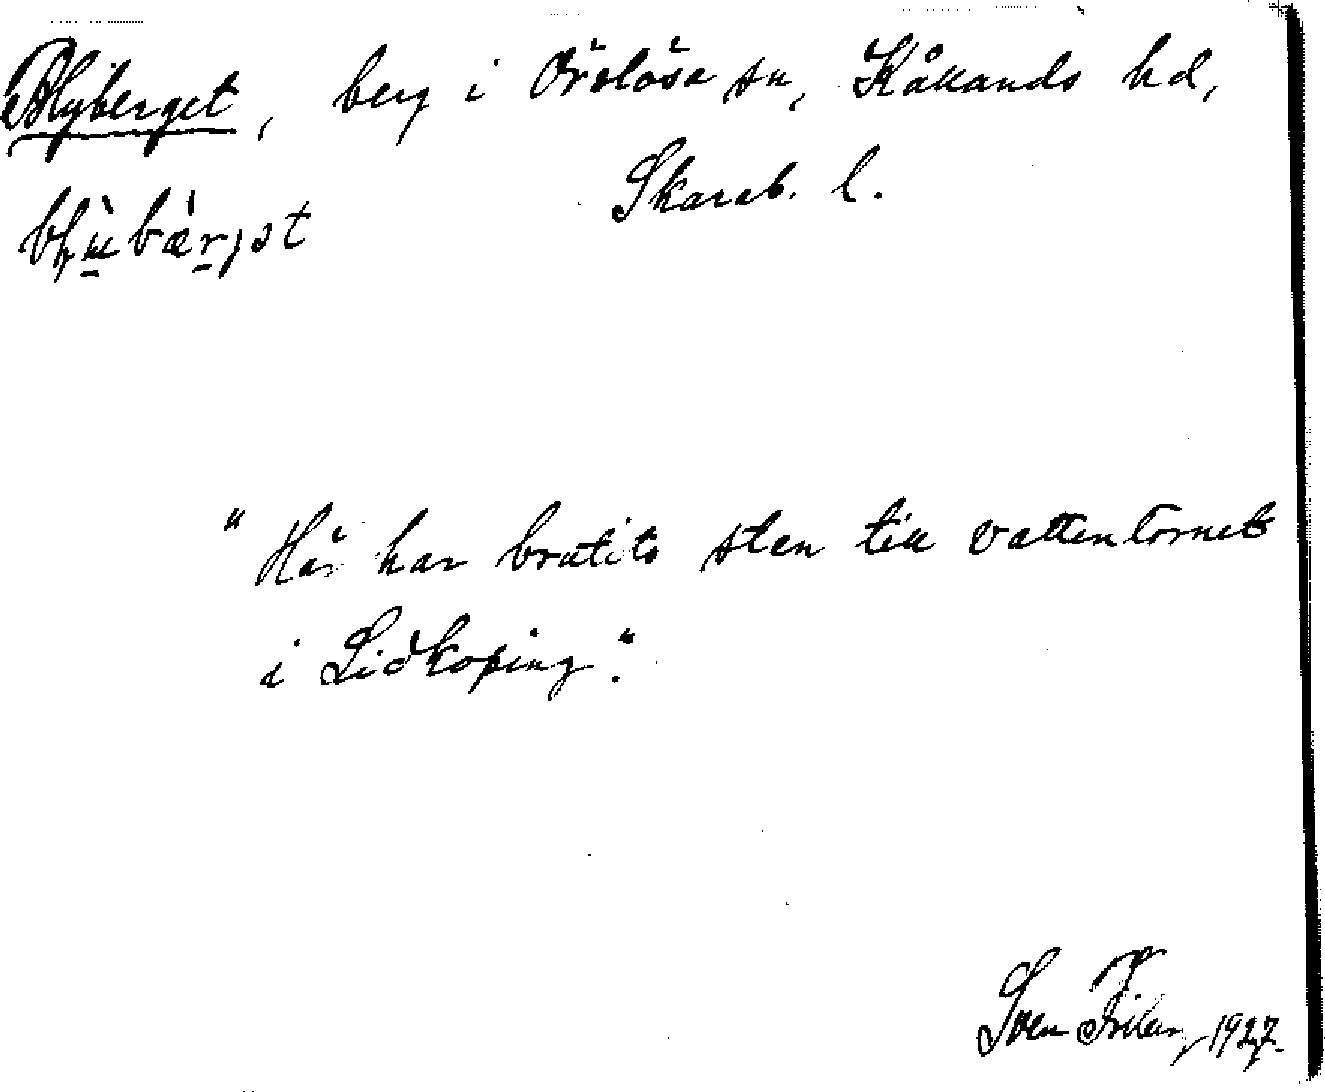 Blyberget, berg i Örslösa sn, Kållands hd,
Skarab. l.
"Här har brutits sten till vattentornet
i Lidköping."
Sven 1927.